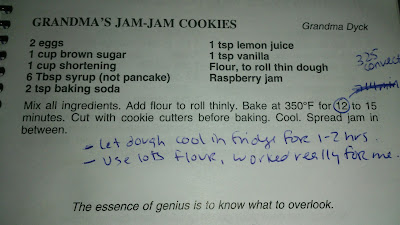 GRANDMA'S JAM-JAM COOKIES
Grandma Dyck
2 eggs
1 cup brown sugar
1 cup shortening
6 Tbsp syrup (not pancake)
2 tsp baking soda
1 tsp lemon juice
1 tsp vanilla
Flour, to roll thin dough
Raspberry jam
325
convect
Mix all ingredients. Add flour to roll thinly. Bake at 350°F for 12 to 15
minutes. Cut with cookie cutters before baking. Cool. Spread jam in
between.
- Let dough cool in fridge for 1-2 hrs.
- Use lots flour, worked really for me.
The essence of genius is to know what to overlook.